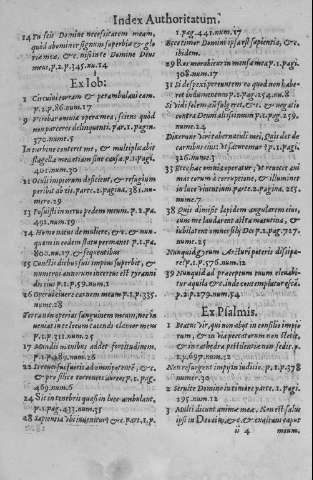 Index Authoritatum.
14 Tu scis Domine necessitatem meam,
quod abominer signum superbiæ & glo
riæ meæ, &c. nisi tu te Domine Deus
meus, p.2. p.345. nu.14
Ex Iob:
2 Circuiui terram & perambulaui eam.
p.1. p.86. num.17
9 Verebar omnia opera mea, sciens quod
non parceres delinquenti. par.1. pagin.
370. nume.2
In turbine conteret me, & multiplicabit
flagella mea etiam sine causa. p.1. pagi.
405. num.30
21 Oculi impiorum deficient, & refugium
peribit ab eis. parte.2. pagina, 381. nu-
mero.29
13 Posuisti in neruo pedem meum. p.2. pa.
491. num.19
14 Homo natus de muliere, &c. & nun-
quam in eodem statu permanet p.1. pa.
802. nu.17 & sequentibus
15 Cunctis diebus suis impius superbit, &
numerus annorum incertus est tyranni
dis eius p.1. p.59. num.1
16 Operui cinere carnem meam p.1. p.335.
nume.28
Terra ne operias sanguinem meum, nec in
ueniat in te locum latendi clamor meus
p.1. p.311. num.25
17 Mundis manibus addet fortitudinem.
p.1. p.489. num.26
22
& pro silice torrentes aureos p.1. pag.
469. num.6
24 Sic in tenebris quasi in luce ambulant,
p.1. pag.433. num.35
28 Sapientia vbi inuenitur & c. par.1, p.
1. pag.441. num.17
Ecce timor Domini ipsa est sapientia, &c.
ibidem.
29
308. num.17
31 Si despexi prætereuntem eo quod non habe-
ret indumentum p.1. pag.254. nu.8
Si vidi solem cum fulgeret, &c. & negatio
contra Deum altissimum p.1. pag.259.
nume.24
Dixerunt viri tabernaculi mei, Quis det de
carnibus eius vt saturemur p.1. pagi.
326. nume.3
33 Ecce hæc omnia operatur, Vt reuocet ani
mas eorum à corruptione, & illuminet
in luce viuentium parte.2. pagina, 215.
nume.7
38 Quis dimisit lapidem angularem eius,
cum me laudarent astra matutina, &
iubilarent omnes filij Dei p.1. pag.727.
nume.25
Nunquid gyrum Arcturi poteris dissipa-
re p.1. p.576. num.12
39 Nunquid ad præceptum tuum eleuabi-
tur aquila &c. inde contemplatur escā.
p.2. p.279. num.54
Ex Psalmis.
1 Beatus vir, qui non abijt in consilio impio
rum, & in via peccatorum non stetit,
& in cathedra pestilentiæ non sedit. p.
23. 697. num.32
Non resurgent impij in iudicio. p.1. p.378
nume.30
2 Seruite Domino in timore parte.1. pagi.
295. num.12
3 Multi dicunt animæ meæ. Non est salus
ipsi in Deo eius, &c. & exaltans caput
ii 4 meum,